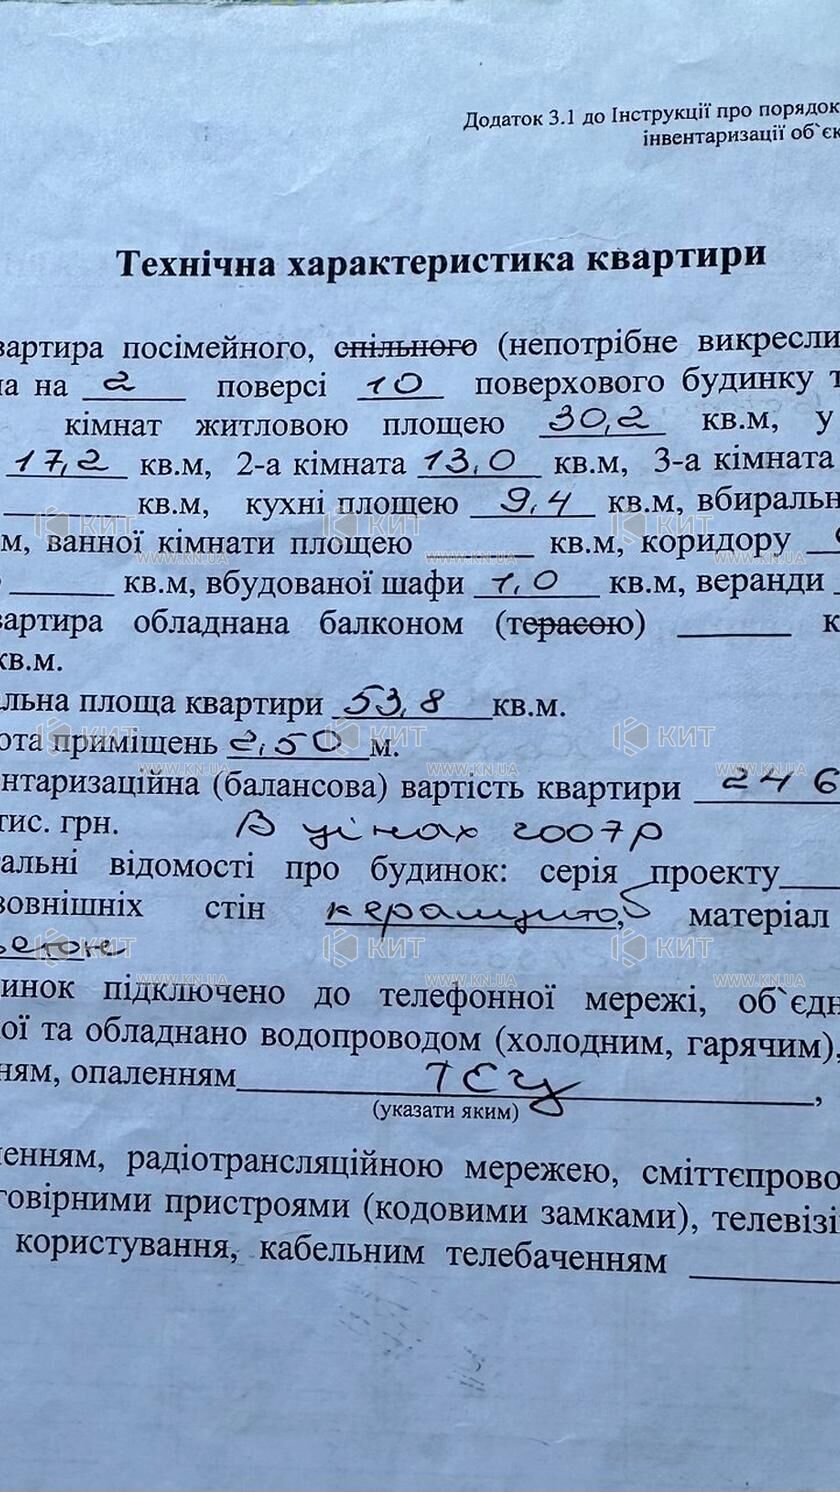 Додаток 3.1 до Інструкції про порядок
інвентаризації об`єк
Технічна характеристика квартири
вартира посімейного, спільного (непотрібне викресли
на на 2 поверсі 10 поверхового будинку т
кімнат житловою площею 30,2 кв.м, у
17,2 кв.м, 2-а кімната 13,0 кв.м, 3-а кімната
кв.м, кухні площею 9,4 кв.м, вбиральн
м, ванної кімнати площею кв.м, коридору
кв.м, вбудованої шафи 1,0 кв.м, веранди
вартира обладнана балконом (терасою) к
кв.м.
альна площа квартири 53,8 кв.м.
ота приміщень 2,50 м.
ентаризаційна (балансова) вартість квартири 246
тис. грн. В цінах 2007р
альні відомості про будинок: серія проекту
зовнішніх стін керамзито, матеріал
бетоне
инок підключено до телефонної мережі, об`єдн
ої та обладнано водопроводом (холодним, гарячим),
ням, опаленням ТЕЦ,
(указати яким)
ленням, радіотрансляційною мережею, сміттєпрово
говірними пристроями (кодовими замками), телевізі
користування, кабельним телебаченням
КИТ
WWW.KN.UA
КИТ
WWW.KN.UA
КИТ
WWW.KN.UA
КИТ
WWW.KN.UA
КИТ
WWW.KN.UA
КИТ
WWW.KN.UA
КИТ
WWW.KN.UA
КИТ
WWW.KN.UA
КИТ
WWW.KN.UA